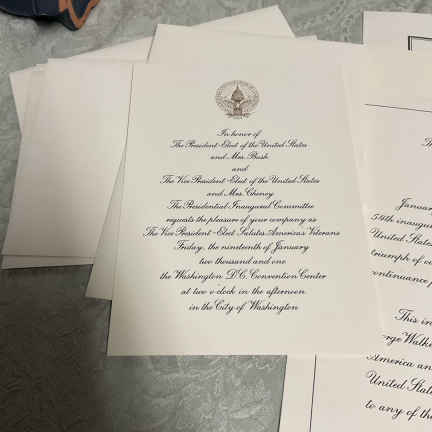 In honor of
The President-Elect of the United States
and Mrs. Bush
and
The Vice President-Elect of the United States
and Mrs. Cheney
The Presidential Inaugural Committee
requests the pleasure of your company as
The Vice President-Elect Salutes America's Veterans
Friday, the nineteenth of January
two thousand and one
the Washington D.C. Convention Center
at two o'clock in the afternoon
in the City of Washington
Januar
54th inaugu
United State
triumph of
continuance
This in
rge Walk
America an
United Stat
to any of th